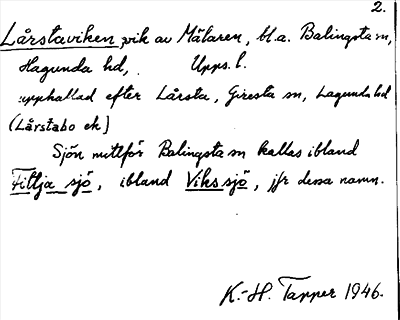 2.
Lårstaviken, vik av Mälaren, bl.a. Balingsta sn,
Hagunda hd, Upps. l.
upphallad efter Lårsta, Giresta sn, Lagunda hd
(Lårstabo ek)
Sjön mittför Balingsta sn kallas ibland
Fittja sjö, ibland Vikssjö, jfr dessa namn.
K.-H. Tapper 1946.